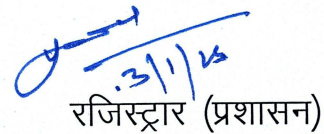 .3/1/25
रजिस्ट्रार (प्रशासन)